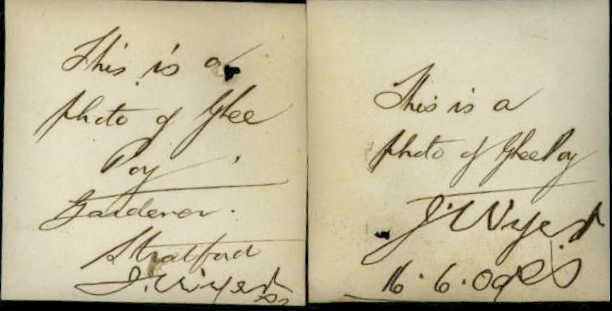 This is a
photo of Ghee
Poy
Gardener.
Stratford
J. Wyer
This is a
photo of Ghee Poy
J. Wyer
16.6.09